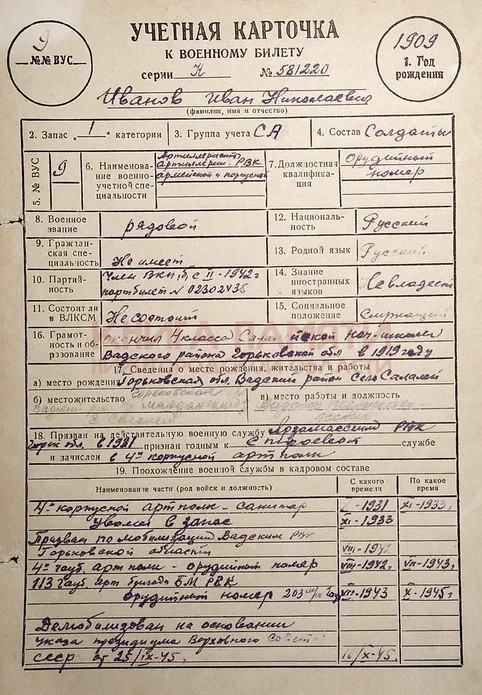 УЧЕТНАЯ КАРТОЧКА
К ВОЕННОМУ БИЛЕТУ
серии К № 581220
9
№№ ВУС
1909
1. Год рождения
Иванов Иван Николаевич
(фамилия, имя и отчество)
2. Запас 1 категории
3. Группа учета СА
4. Состав Солдаты
5. № ВУС 9
6. Наименование военно-учетной специальности
Артиллерист, артиллерии РВК армейской и корпусной
7. Должностная квалификация
Орудийный номер
8. Военное звание рядовой
12. Националь-ность Русский
9. Граждан-ская спе-циальность Не имеет
13. Родной язык Русский
10. Партий-ность Член ВКП/б/ с II-1942г
партбилет № 02302436
14. Знание иностранных языков Не владеет
11. Состоит ли в ВЛКСМ Не состоит
15. Социальное положение Служащий
16. Грамотность и об-разование окончил 4 класса нач. школы
Вадского района Горьковской обл в 1919 году
17. Сведения о месте рождения, жительства и работы
а) место рождения Горьковская обл, Вадский район Село
б) местожительство Горьковская
Вадский
в) место работы
18. Призван на действительную военную службу Арзамасским РВК
в 1931 признан годным к строевой службе
и зачислен в 4й корпусной арт полк
19. Прохождение военной службы в кадровом составе
Наименование части (род войск и должность)
С какого времени
По какое время
4й корпусной арт полк - санитар -1931 XI-1933
Уволен в запас XI-1933
Призван по мобилизации Вадским РВК
Горьковской области VIII-194
4й гауб. арт полк - орудийный номер VIII-1942г. VII-1943г
113 гауб. арт бригада БМ РВК
орудийный номер 203 м/м VII-1943 X-1945г.
Демобилизован на основании
указа президиума Верховного Совета
СССР от 25/IX-45г. X-45г.